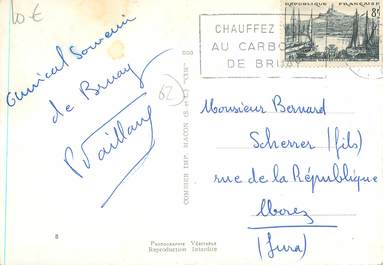 10 €
CHAUFFEZ
AU CARBO
DE BRU
REPUBLIQUE FRANÇAISE
8f
Amical Souvenir
de Bruay
P. Vaillant
62
COMBIER IMP. MACON (S.-&-L.) "CIM"
Monsieur Bernard
Scherrer (fils)
rue de la République
Morez
(Jura)
8
PHOTOGRAPHIE VÉRITABLE
Reproduction Interdite